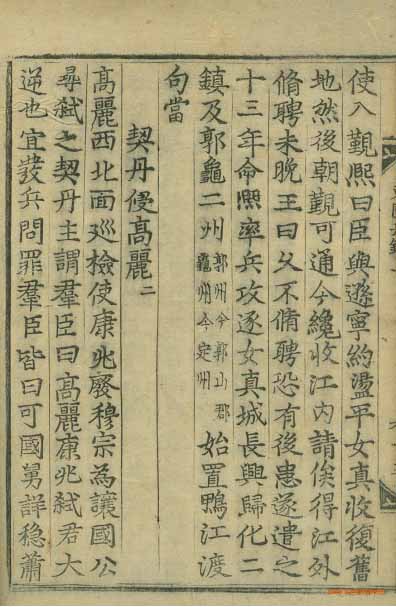 使入覲熙曰臣與遜寧約盪平女真收復舊
地然後朝覲可通今纔收江內請俟得江外
脩聘未晚王曰久不脩聘恐有後患遂遣之
十三年命熙率兵攻逐女真城長興歸化二
鎮及郭龜二州郭州今郭山郡龜州今定州始置鴨江渡
句當
契丹侵高麗二
高麗西北面巡檢使康兆廢穆宗為讓國公
尋弒之契丹主謂羣臣曰高麗康兆弒君大
逆也宜發兵問罪羣臣皆曰可國舅詳穩蕭